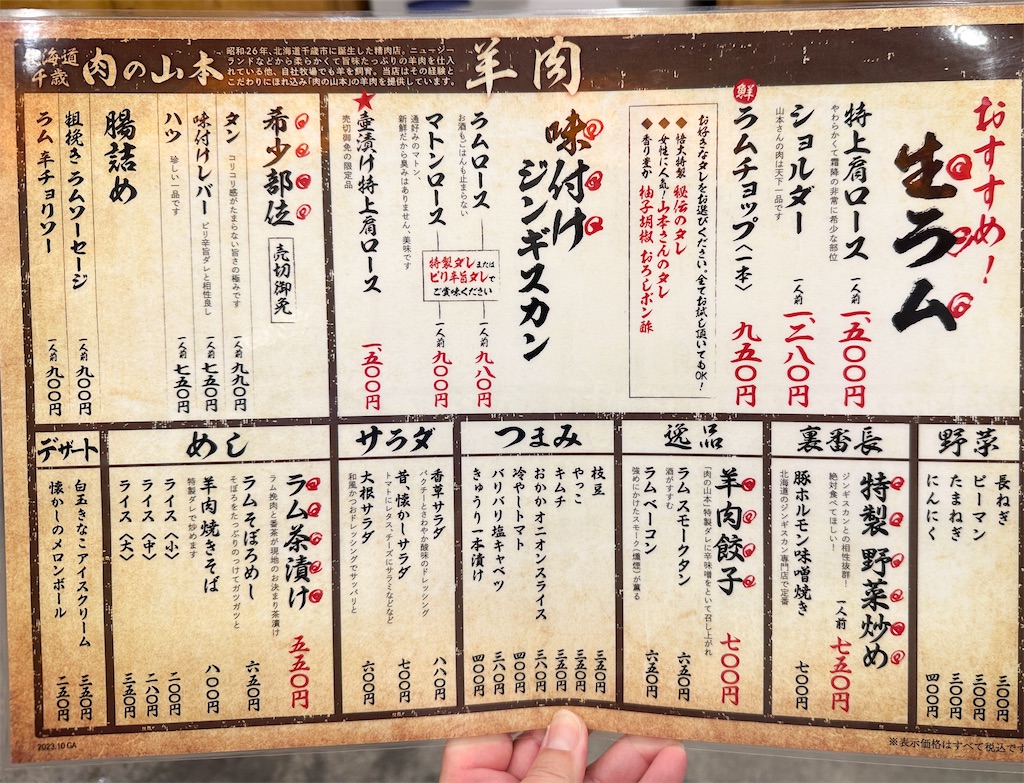 北海道
千歳
肉の山本
昭和26年、北海道千歳市に誕生した精肉店。ニュージー
ランドなどから柔らかくて旨味たっぷりの羊肉を仕入
れている他、自社牧場でも羊を飼育。当店はその経験と
こだわりにほれ込み「肉の山本」の羊肉を提供しています。
羊肉
おすすめ!
生ラム
特上肩ロース 一人前 一、五〇〇円
やわらかくて霜降の非常に希少な部位
ショルダー 一人前 一、二八〇円
山本さんの肉は天下一品です
鮮
ラムチョップ〈一本〉 九五〇円
お好きなタレをお選びください。全てお試し頂いてもOK!
◆悟大特製 秘伝のタレ
◆女性に人気! 山本さんのタレ
◆香り豊か 柚子胡椒 おろしポン酢
味付け
ジンギスカン
ラムロース 一人前 九八〇円
お酒もごはんも止まらない
マトンロース 一人前 九〇〇円
通好みのマトン、
新鮮だから臭みはありません、美味です
特製タレまたは
ピリ辛旨タレで
ご賞味ください
★壺漬け特上肩ロース 一、五〇〇円
売切御免の限定品
希少部位
売切御免
タン コリコリ感がたまらない旨さの極みです 一人前 九九〇円
味付けレバー ピリ辛旨ダレと相性良し 一人前 七五〇円
ハツ 珍しい一品です 一人前 七五〇円
腸詰め
粗挽きラムソーセージ 一人前 九〇〇円
ラム羊チョリソー 一人前 九〇〇円
野菜
長ねぎ 三〇〇円
ピーマン 三〇〇円
たまねぎ 三〇〇円
にんにく 四〇〇円
裏番長
特製 野菜炒め 一人前 七五〇円
ジンギスカンとの相性抜群!
絶対食べてほしい!
豚ホルモン味噌焼き 七〇〇円
北海道のジンギスカン専門店で定番
逸品
羊肉餃子 七〇〇円
「肉の山本」特製ダレに辛味噌をといて召し上がれ
ラムスモークタン 六五〇円
酒がすすむ
ラムベーコン 六五〇円
強めにかけたスモーク(燻煙)が薫る
つまみ
枝豆 三五〇円
やっこ 三五〇円
キムチ 三五〇円
おかかオニオンスライス 三八〇円
冷やしトマト 四〇〇円
バリバリ塩キャベツ 四〇〇円
きゅうり一本漬け 四〇〇円
サラダ
香草サラダ 八八〇円
パクチーとさわやか酸味のドレッシング
昔、懐かしサラダ 七〇〇円
トマトにレタス、チーズにサラミなどなど
大根サラダ 六〇〇円
和風かつおドレッシングでサッパリと
めし
ラム茶漬け 五五〇円
ラム挽肉と番茶が現地のお決まり茶漬け
ラムそぼろめし 六五〇円
そぼろをたっぷりのっけてガツガツと
羊肉焼きそば 八〇〇円
特製ダレで炒めます
ライス〈小〉 二〇〇円
ライス〈中〉 二八〇円
ライス〈大〉 三五〇円
デザート
白玉きなこアイスクリーム 三五〇円
懐かしのメロンボール 二五〇円
2023.10 GA
※表示価格はすべて税込です